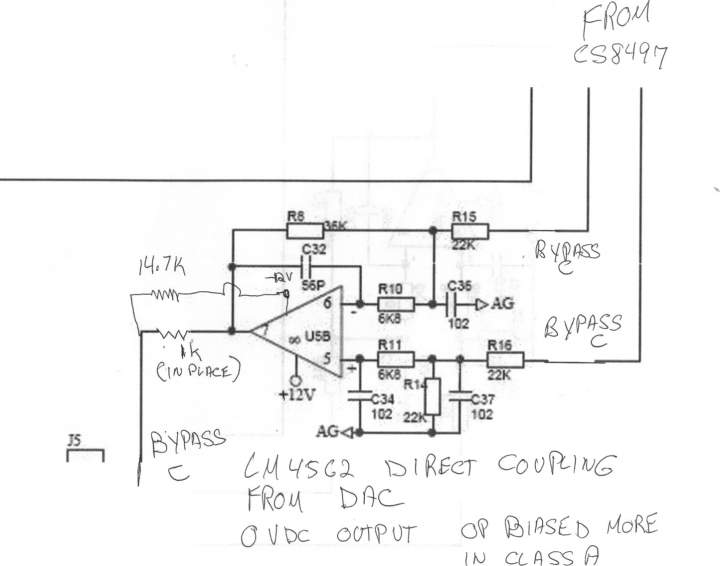 FROM
CS8497
R8
36K
R15
22K
BYPASS
C
C32
56P
-12V
14.7K
6
-
R10
6K8
C36
102
AG
BYPASS
C
7
∞
U5B
1K
(IN PLACE)
5
+
R11
6K8
R16
22K
R14
22K
+12V
C34
102
C37
102
AG
J5
BYPASS
C
LM4562 DIRECT COUPLING
FROM DAC
0 VDC OUTPUT OP BIASED MORE
IN CLASS A